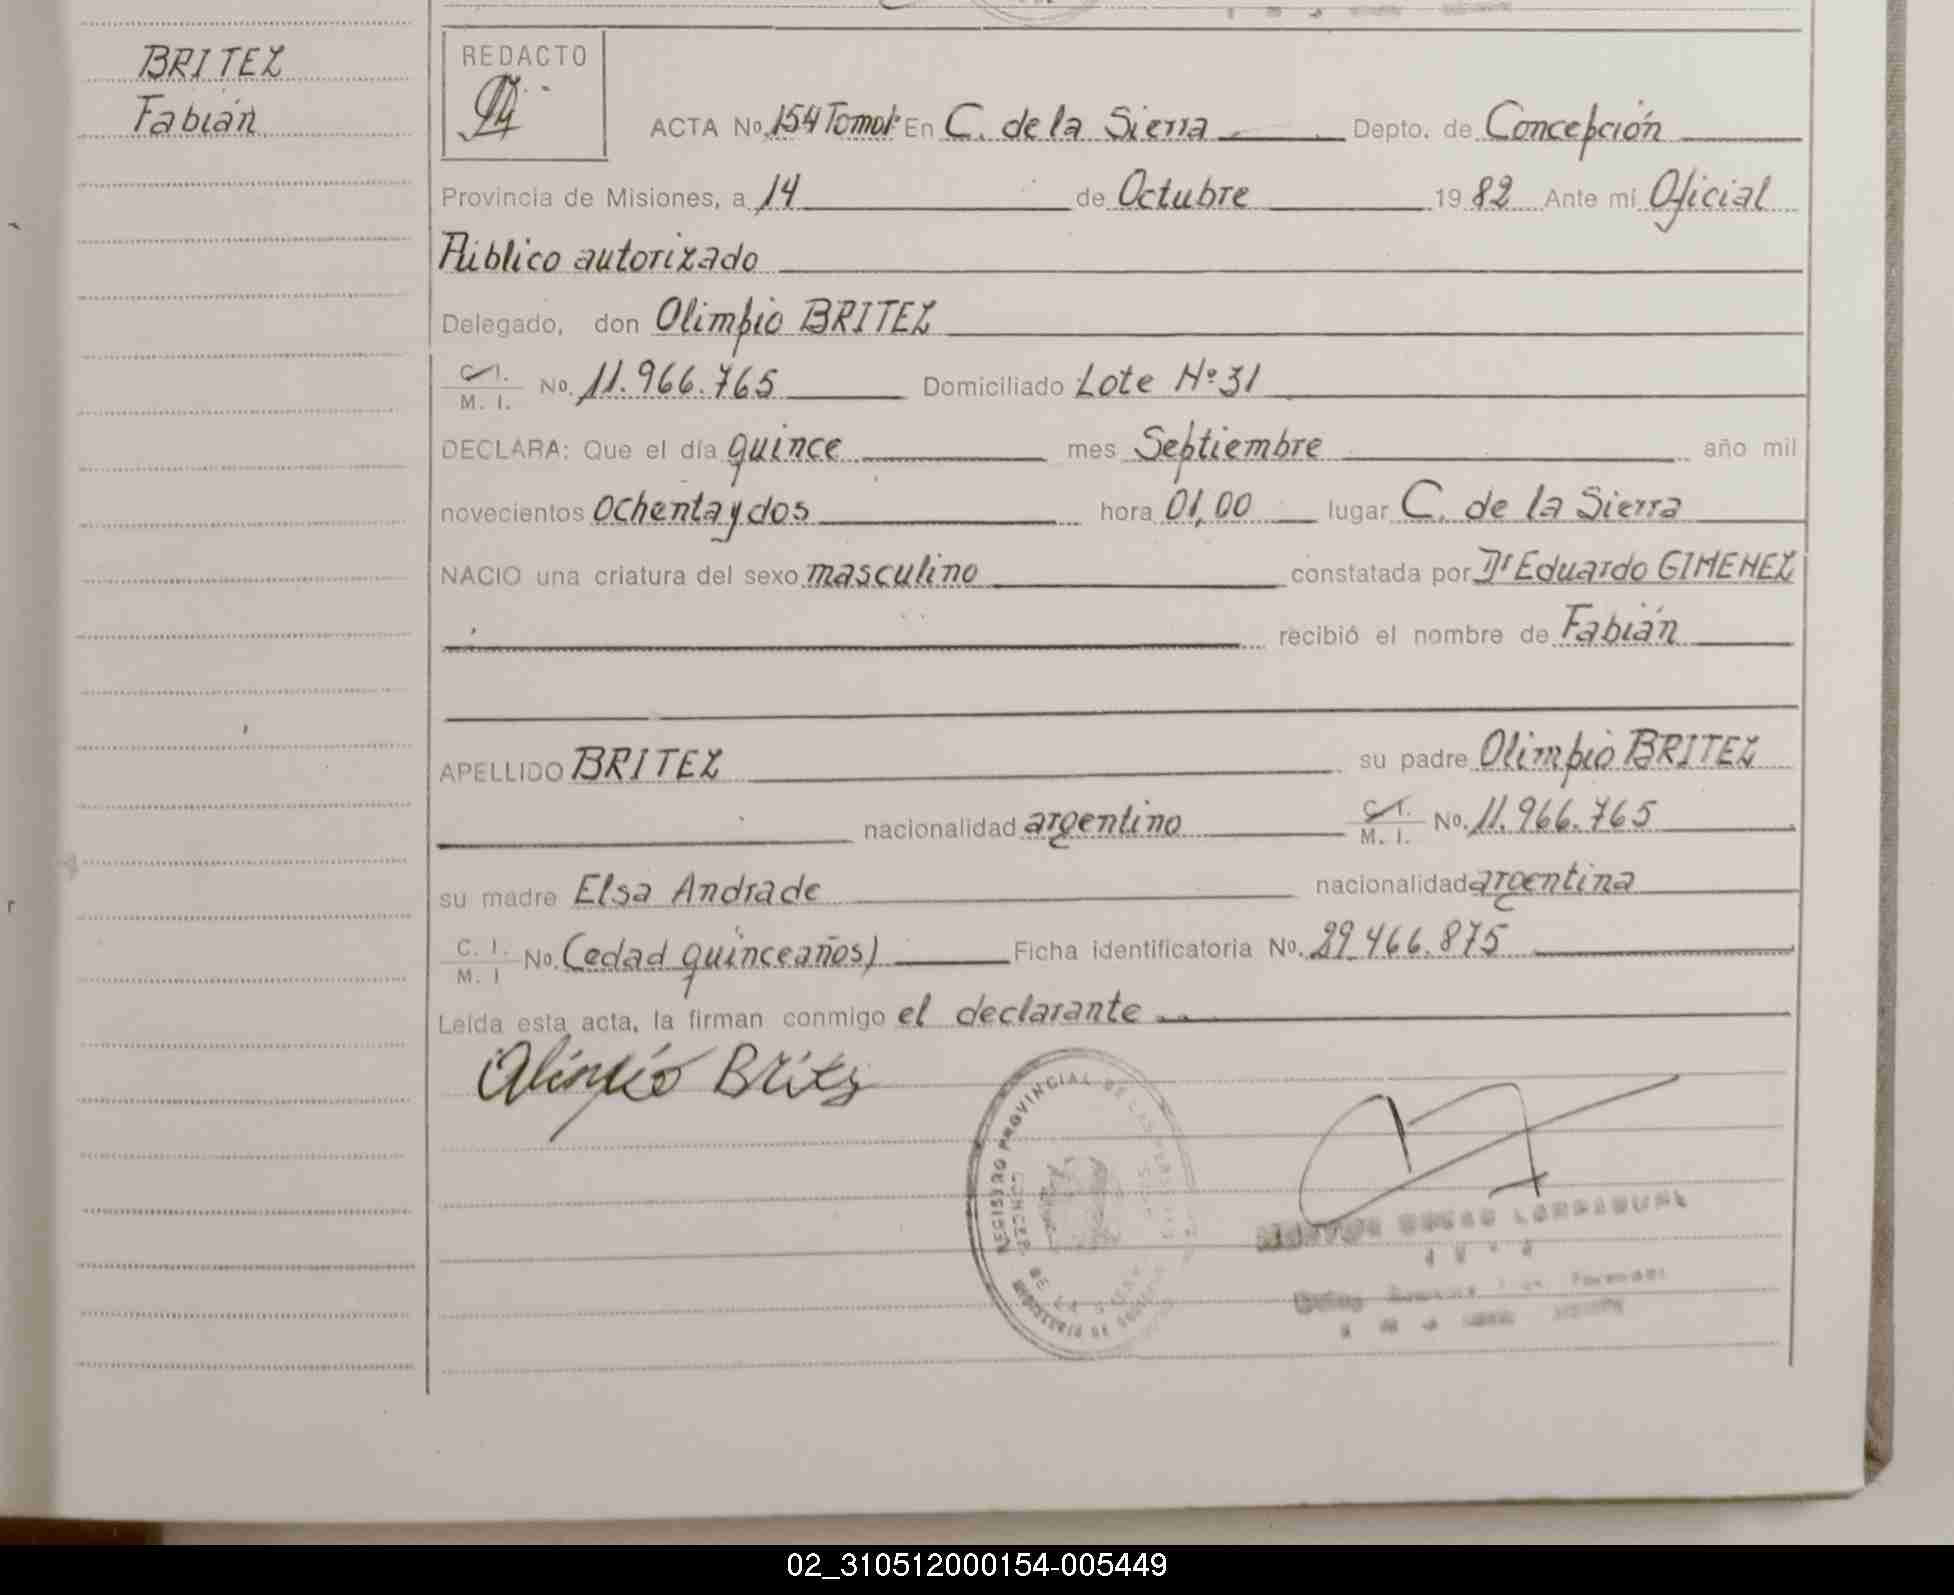 BRITEZ
Fabián
REDACTO
ACTA No. 154 Tomo I· En C. de la Sierra Depto. de Concepción
Provincia de Misiones, a 14 de Octubre 1982 Ante mi Oficial
Público autorizado
Delegado, don Olimpio BRITEZ
C. I. M. I. No. 11.966.765 Domiciliado Lote Nº 31
DECLARA: Que el día quince mes Septiembre año mil
novecientos ochentaydos hora 01,00 lugar C. de la Sierra
NACIO una criatura del sexo masculino constatada por Dr Eduardo GIMENEZ
recibió el nombre de Fabián
APELLIDO BRITEZ su padre Olimpio BRITEZ
nacionalidad argentino C. I. M. I. No. 11.966.765
su madre Elsa Andrade nacionalidad argentina
C. I. M. I No. (edad quinceaños) Ficha identificatoria No. 29.466.875
Leída esta acta, la firman conmigo el declarante
Olimpio Britez
REGISTRO PROVINCIAL DE LAS PERSONAS
CONCEP
DE LA SIERRA
02_310512000154-005449